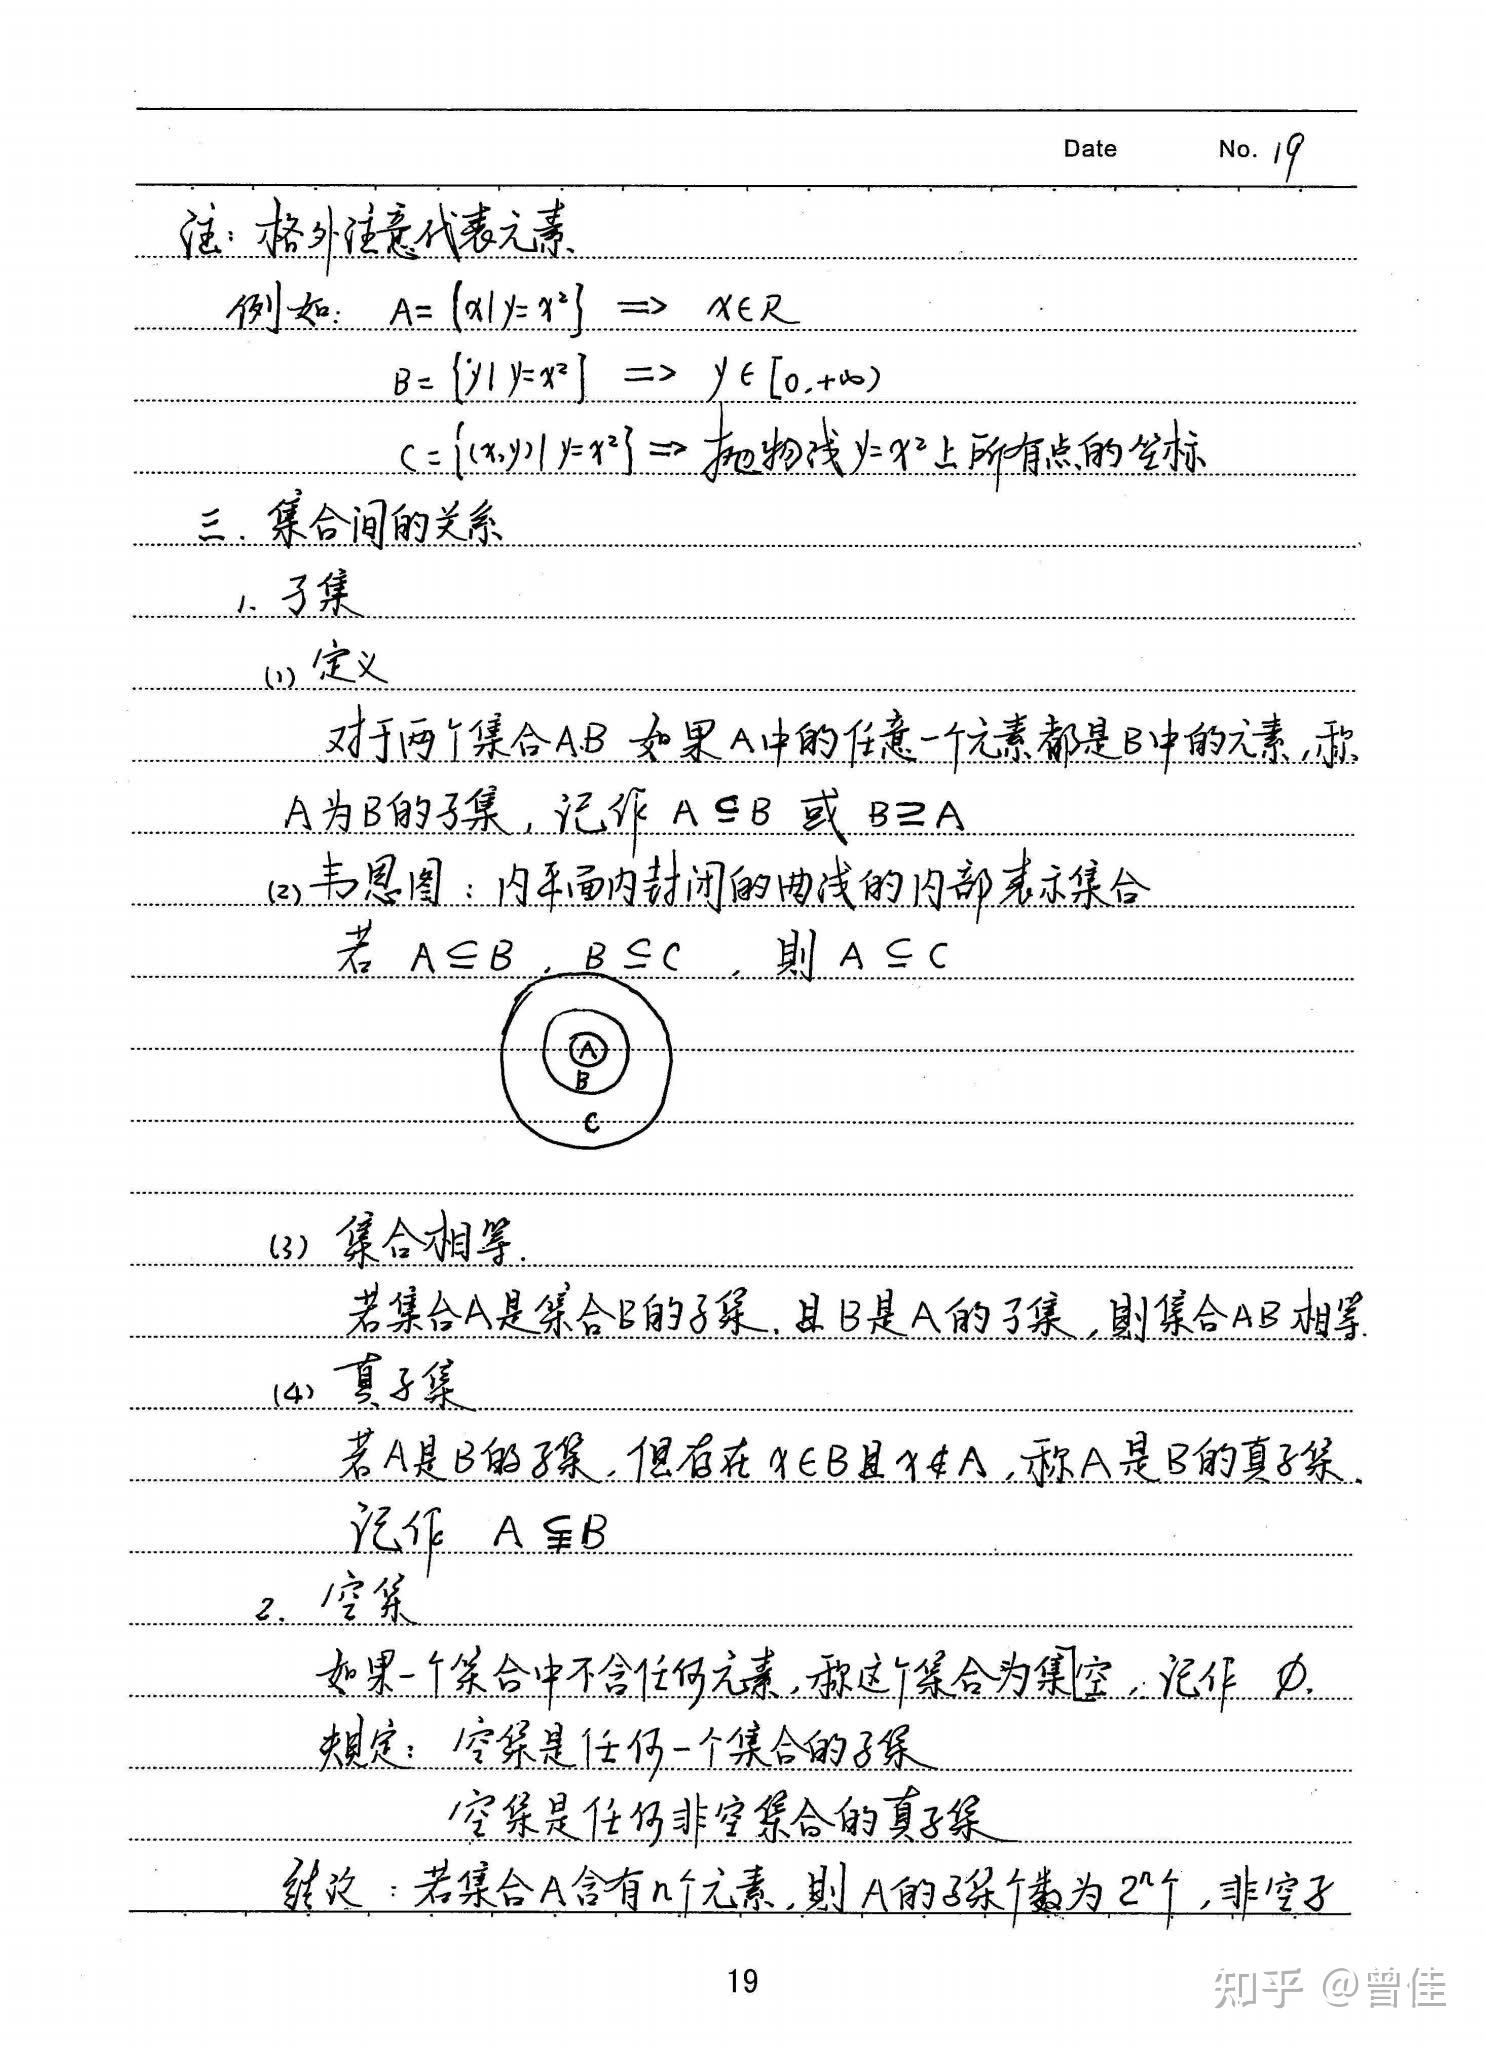 Date No. 19
注：格外注意代表元素.
例如：A={x|y=x²} => x∈R
B={y|y=x²} => y∈[0,+∞)
C={(x,y)|y=x²} => 抛物线y=x²上所有点的坐标
三.集合间的关系
1.子集
(1)定义
对于两个集合A.B 如果A中的任意一个元素都是B中的元素,称
A为B的子集,记作 A⊆B 或 B⊇A
(2)韦恩图：内平面内封闭的曲线的内部表示集合
若 A⊆B , B⊆C , 則 A⊆C
A
B
C
(3) 集合相等.
若集合A是集合B的子集.且B是A的子集,則集合AB相等.
(4) 真子集
若A是B的子集,但存在x∈B且x∉A,称A是B的真子集.
记作 A⫋B
2.空集
如果一个集合中不含任何元素,称这个集合为集空,记作 ∅.
規定：空集是任何一个集合的子集
空集是任何非空集合的真子集
结论：若集合A含有n个元素,則A的子集个数为2ⁿ个,非空子
19
知乎 @曾佳